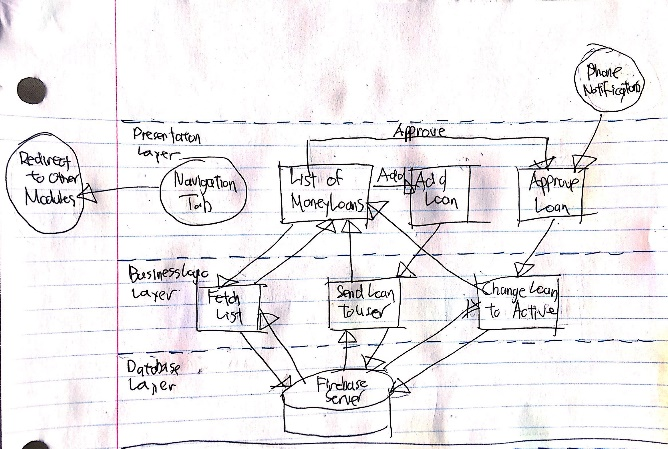 Phone
Notification
Approve
Presentation
Layer
Redirect
to other
Modules
Navigation
Tab
List of
MoneyLoans
Add
Add
Loan
Approve
Loan
Business Logic
Layer
Fetch
List
Send Loan
to user
Change Loan
to Active
Database
Layer
Firebase
Server